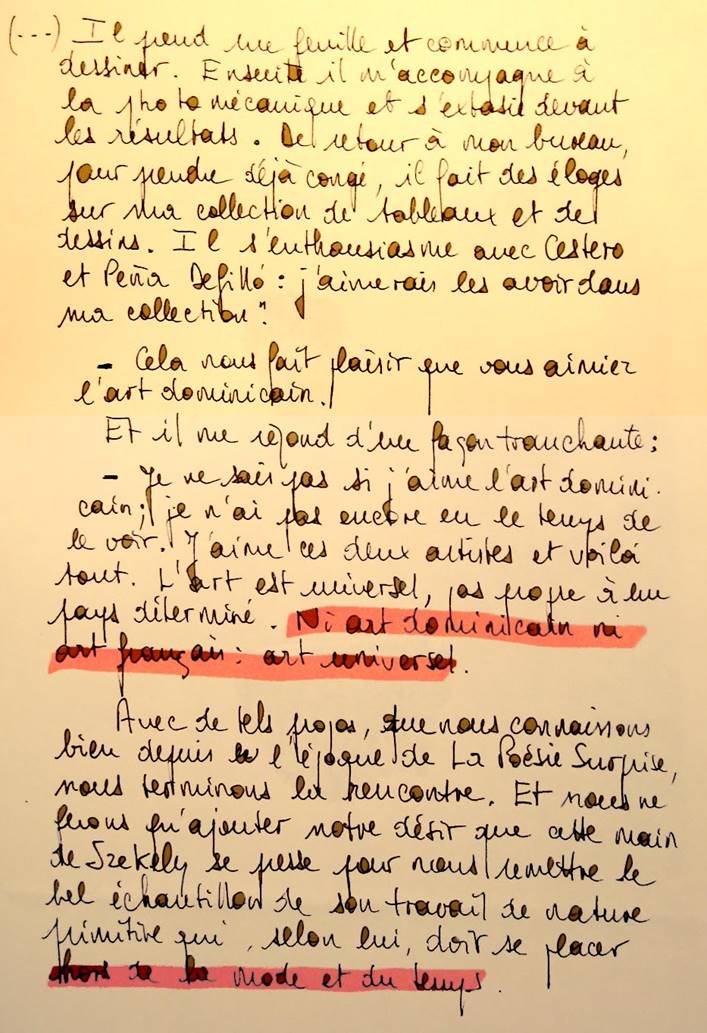 (...) Il prend une feuille et commence à
dessiner. Ensuite il m'accompagne à
la photo mécanique et s'extasie devant
les résultats. De retour à mon bureau,
pour prendre déjà congé, il fait des éloges
sur ma collection de tableaux et de
dessins. Il s'enthousiasme avec Cestero
et Peña Defilló: j'aimerais les avoir dans
ma collection".
- Cela nous fait plaisir que vous aimiez
l'art dominicain.
Et il me répond d'une façon tranchante:
- Je ne sais pas si j'aime l'art domini-
cain; je n'ai pas encore eu le temps de
le voir. J'aime ces deux artistes et voilà
tout. L'art est universel, pas propre à un
pays déterminé. Ni art dominicain ni
art français: art universel.
Avec de tels propos, que nous connaissons
bien depuis l'époque de La Poésie Surprise,
nous terminons la rencontre. Et nous ne
ferons qu'ajouter notre désir que cette main
de Szekely se presse pour nous remettre le
bel échantillon de son travail de nature
primitive qui, selon lui, doit se placer
hors de la mode et du temps.